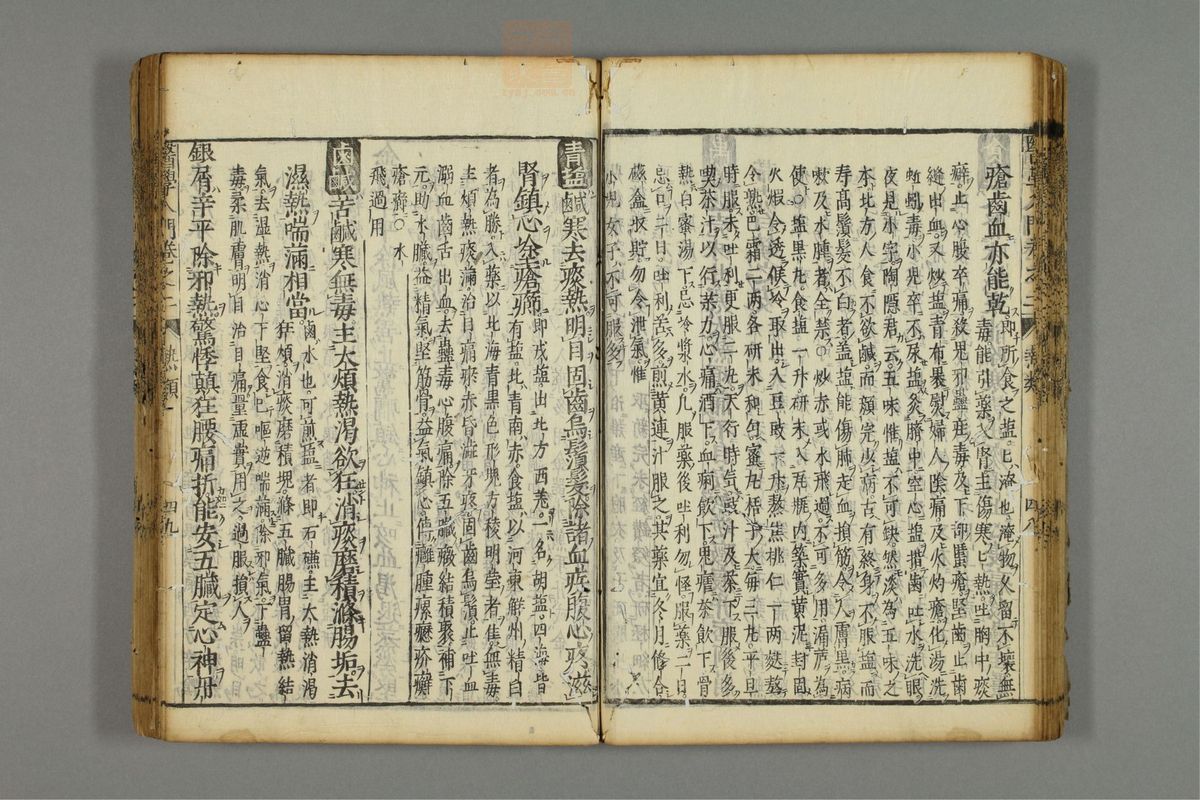 瘡齒血亦能乾 即所食之塩上 淹物久留不壞無
毒能引藥入腎主傷寒 熱吐胸中痰
癖止心腹卒痛殺鬼邪蠱疰毒及下部䘌瘡堅齒止齒
縫出血又炒塩青布裹熨婦人陰痛及火灼瘡化湯洗
蚯蚓毒小兒卒不尿塩灸臍中空心塩揩齒吐水洗眼
夜見小字陶隱君云五味惟塩不可缺然淡為五味之
本北方人食不欲鹹而顔完少病古有終身不服塩而
壽高鬚髮不白者盖塩能傷肺走血損筋令人膚黒病
嗽及水腫者全禁○炒赤或水飛過不可多用漏芦為
使○塩黒丸食塩一升研末入瓦瓶內築實黄泥封固
火煅令透候冷取出入豆豉一升熬焦桃仁一两麩熬
令熟巴霜二两各研末和匀蜜丸梧子大每三丸平旦
時服未吐利更服二丸天行時氣豉汁及茶下服後多
喫茶汁以行藥力心痛酒下血痢飲下鬼瘧茶飲下骨
熱白蜜湯下忌冷漿水凡服藥後吐利勿怪服藥二日
忌可二日吐利若多煎黄連汁服之其藥宜冬月修合
磁盒收貯勿令泄氣惟
小兒女子不可服多
青塩鹹寒去痰熱明目固齒烏鬚髮除諸血疾腹心疼滋
腎鎮心除瘡癬 即戎塩出北方西羌一名胡塩四海皆
有塩此青南赤食塩以河東鮮州精白
者為勝入藥以北海青黒色形塊方稜明瑩者佳無毒
主煩熱痰滿治目痛瘀赤昏澁牙疾固齒烏鬚止吐血
溺血齒舌出血去蠱毒心腹痛除五臟癥結積聚補下
元助水臓益精氣堅筋骨益氣鎮心
瘡癬○水
飛過用
鹵鹹苦鹹寒無毒主大煩熱渴欲狂消痰磨積滌腸垢去
濕熱喘滿相當 鹵水也可煎塩者即石礆主大熱消渴
狂煩消痰磨積塊滌五臟腸胃留熱結
氣去濕熱消心下堅食已嘔逆喘滿除邪氣下蠱
毒柔肌膚明目治目痛量虛實用之過服損人
銀屑辛平除邪熱驚悸顛狂腰痛折能安五臟定心神
醫學入門卷之二 熱類 四九